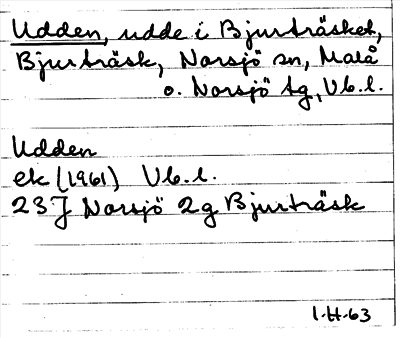 Udden, udde i Bjurträsket,
Bjurträsk, Norsjö sn, Malå
o. Norsjö tg, Vb.l.
Udden
ek (1961) Vb.l.
23J Norsjö 2g Bjurträsk
1.H.63